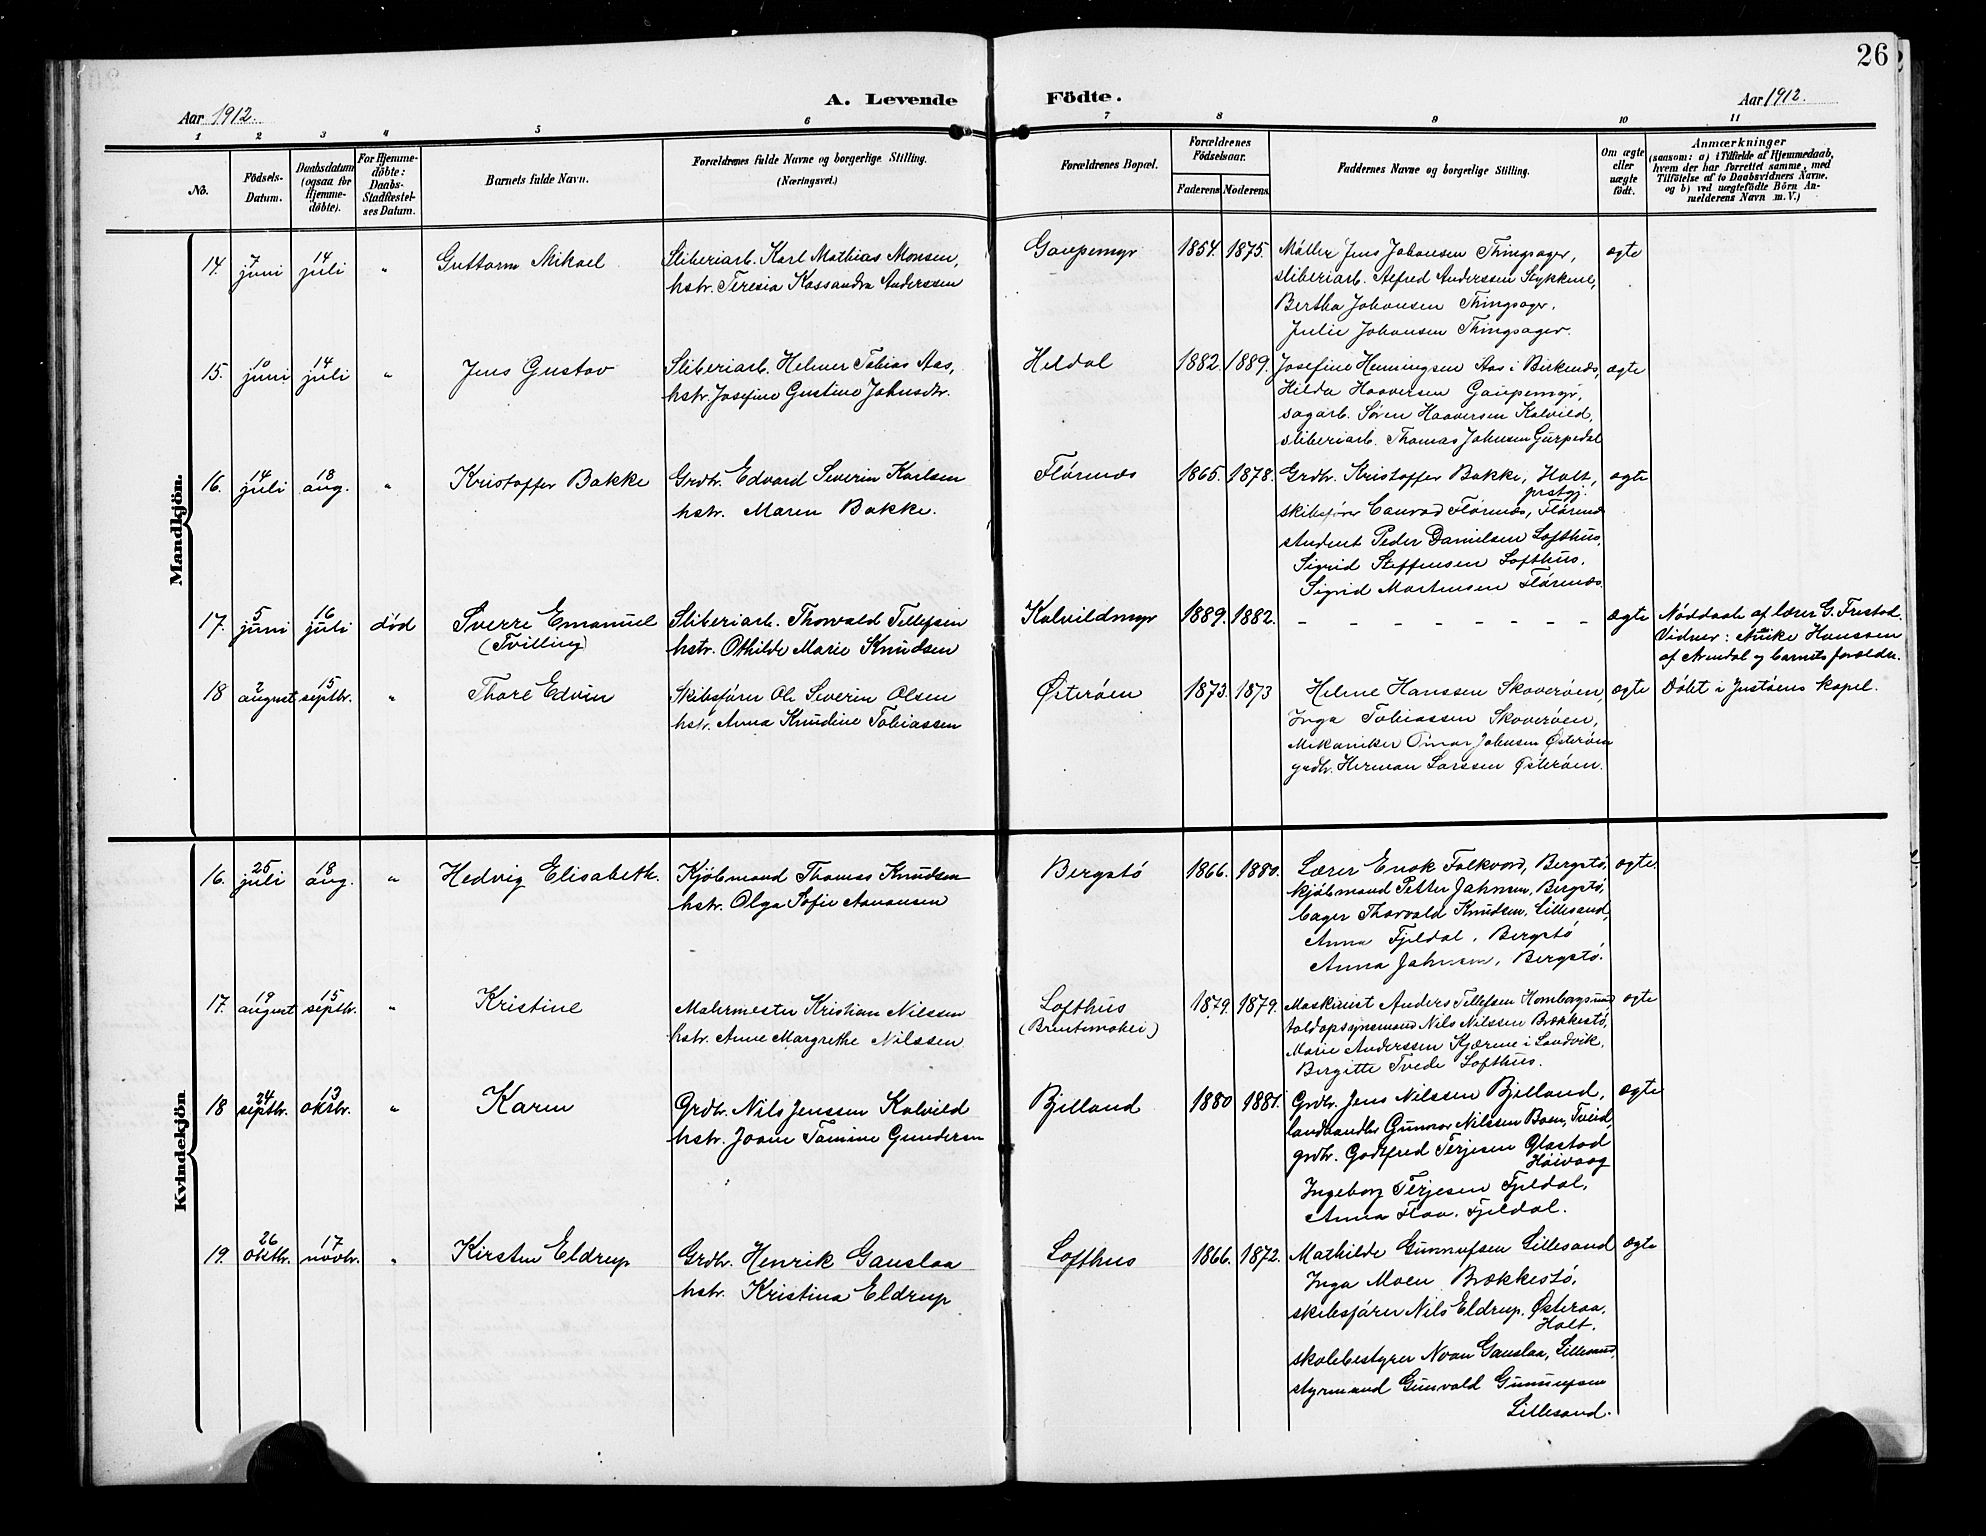 26
Aar 1912.
A. Levende Födte.
Aar 1912.
1 2 3 4 5 6 7 8 9 10 11
No.
Födsels-Datum.
Daabsdatum (ogsaa for Hjemme-döbte).
For Hjemme-döbte: Daabs-Stadfæstel-ses Datum.
Barnets fulde Navn.
Forældrenes fulde Navne og borgerlige Stilling.
(Næringsvei.)
Forældrenes Bopæl.
Forældrenes Födselsaar.
Faderens. Moderens.
Faddernes Navne og borgerlige Stilling.
Om ægte eller uægte födt.
Anmærkninger
(saasom: a) i Tilfælde af Hjemmedaab, hvem der har forrettet samme, med Tilföielse af to Daabsvidners Navne, og b) ved uægtefödte Börn Anmelderens Navn m. V.)
Mandkjön.
14. 7 juni 14 juli " Guttorm Mikael
Sliberiarb. Karl Mathias Monsen,
hstr. Teresia Kassandra Anderssen
Gaupemyr 1854. 1875.
Møller Jens Johansen Thingsager,
sliberiarb. Alfred Anderssen Stykkene,
Bertha Johansen Thingsager.
Julie Johansen Thingsager.
ægte
15. juni 14 juli " Jens Gustav
Sliberiarb. Helmer Tobias Aas,
hstr. Josefine Gustine Johnsdtr.
Heldal 1882. 1889.
Josefine Henningsen Aas i Birkenæs,
Hilda Haaversen Gaupemyr,
sagarb. Søren Haaversen Kalvild,
sliberiarb. Thomas Johnsen Gurpedal
ægte
16. 14 juli 18 aug. " Kristoffer Bakke
Grdbr. Edvard Severin Karlsen
hstr. Maren Bakke.
Flørenæs 1865. 1878.
Grdbr. Kristoffer Bakke, Holt,
prstgj.
skibsfører Conrad Flørenæs, Flørenæs
student Peder Danielsen Lofthus,
Sigrid Steffensen Lofthus.
Sigrid Martensen Flørenæs.
ægte
17. 5 juni 16 juli død Sverre Emanuel
(Tvilling)
Sliberiarb. Thorvald Tellefsen
hstr. Othilde Marie Knudsen
Kalvildmyr 1889. 1882. - - - - - - - -
ægte
Nøddaab af lærer G. Frestad.
Vidner: Anke Hanssen
af Arendal og barnets forældre.
18 2 august 15 septbr. " Thore Edvin
Skibsfører Ole Severin Olsen
hstr. Anna Knudine Tobiassen
Østerøen 1873. 1873
Helene Hanssen Skoverøen,
Inga Tobiassen Skoverøen,
Mekaniker Omar Johnsen Østerøen
grdbr. Herman Larssen Østerøen.
ægte
Døbt i Justøens kapel.
Kvindekjön
16. 25 juli 18 aug. " Hedvig Elisabeth.
Kjøbmand Thomas Knudsen
hstr. Olga Sofie Aanonsen
Bergstø 1866. 1880.
Lærer Enok Falkvord, Bergstø,
kjøbmand Petter Jahnsen, Bergstø,
bager Thorvald Knudsen, Lillesand,
Anna Fjeldal, Bergstø
Anna Jahnsen, Bergstø.
ægte.
17. 19 august 15 septbr. " Kristine
Malermester Kristian Nilssen
hstr. Anne Margrethe Nilssen
Lofthus 1879. 1879.
Maskinist Anders Tellefsen Homborgsund
toldopsynsmand Nils Nilssen Brækkestø,
Marie Anderssen Kjærene i Landvik,
Bergitte Tvede Lofthus.
ægte
18 24 septbr. 13 oktbr. " Karen
Grdbr. Nils Jenssen Kalvild
hstr. Joane Tomine Gundersen
Bjelland 1880 1881.
Grdbr. Jens Nilssen Bjelland,
landhandler Gunnar Nilssen Boen, Tveid,
grdbr. Godtfred Terjesen Glastad
Høivaag
Ingeborg Terjesen Fjeldal,
Anna Flaa, Fjeldal.
ægte
19. 26 oktbr. 17 novbr. " Kirsten Eldrup
Grdbr. Henrik Gauslaa
hstr. Kristina Eldrup
Lofthus 1866. 1872.
Mathilde Gunnufsen Lillesand
Inga Moen, Brækkestø,
skibsfører Nils Eldrup, Østeraa,
Holt.
skolebestyrer Noan Gauslaa, Lillesand,
styrmand Gunvald Gunnufsen
Lillesand.
ægte